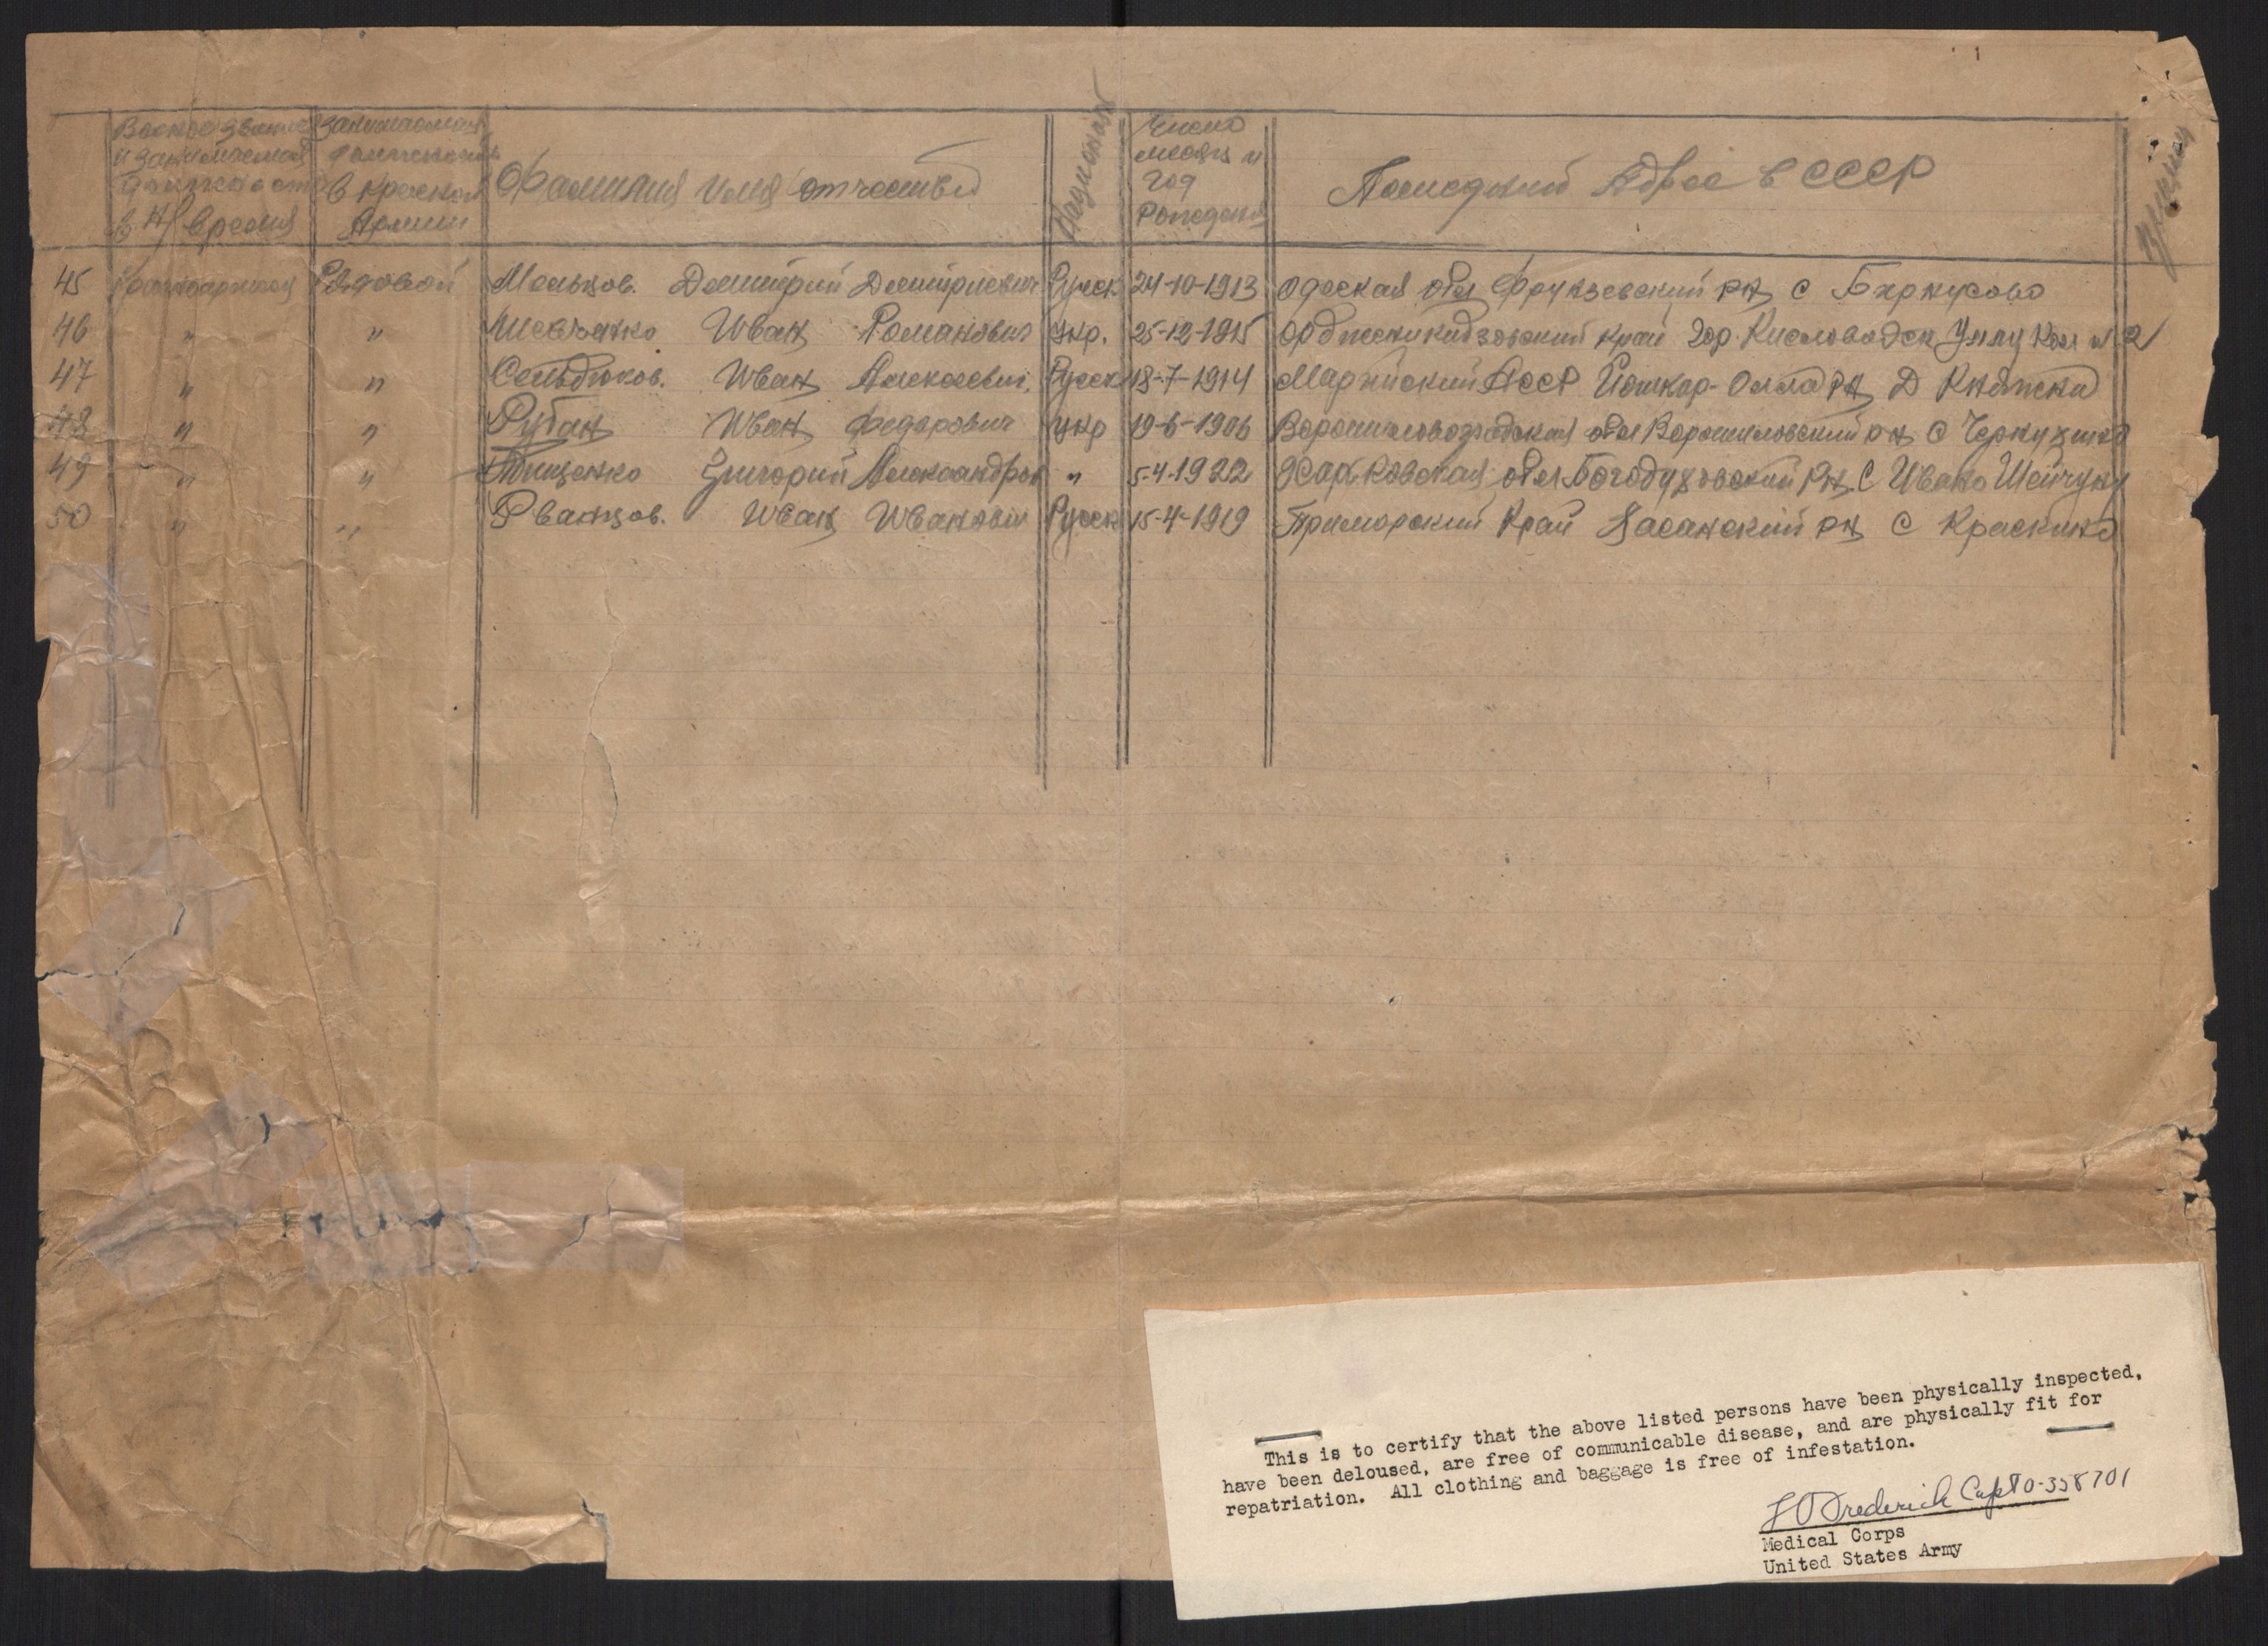 Военое звание и занимаемая должность в н/время
Занимаемая должность в Красной Армии
Фамилия имя отчество
Национальн
Число месяц и год рождения
Последний Адрес в СССР
45 Рядовой Мальцов. Дмитрий Дмитриевич Русск 24-10-1913 Одеская обл Фрунзевский рн с Баркусово
46 " " Шевченко Иван Романович укр. 25-12-1915 Орджникидзовский край гор. Кисловодск N 2
47 " " Сельдюков. Иван Алексеевич. Русск 18-7-1914 Марийский АССР Йошкар-Олла рн Д Княжена
48 " " Рубан Иван Федорович укр 19-6-1906 Ворошиловоградская обл Ворошиловский рн с Черкухино
49 " " Тищенко Григорий Александров " 5-4-1922 Харковская обл Богодуховский рн с Ивано Шейчуку
50 " " Рванцов. Иван Иванович Русск 15-4-1919 Приморский Край Хасанский рн с Краскино
This is to certify that the above listed persons have been physically inspected,
have been deloused, are free of communicable disease, and are physically fit for
repatriation. All clothing and baggage is free of infestation.
Frederick Capt O-358701
Medical Corps
United States Army